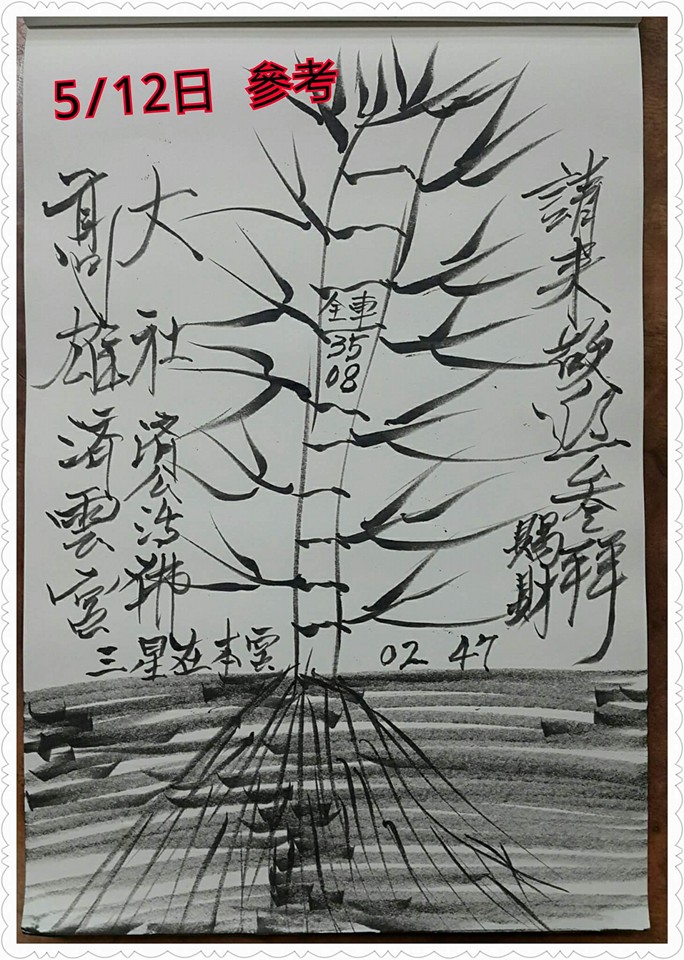 5/12日 參考
請來參
賜財
全車
35
08
大社濟公活佛
高雄濟雲宮
三星在本
02 47